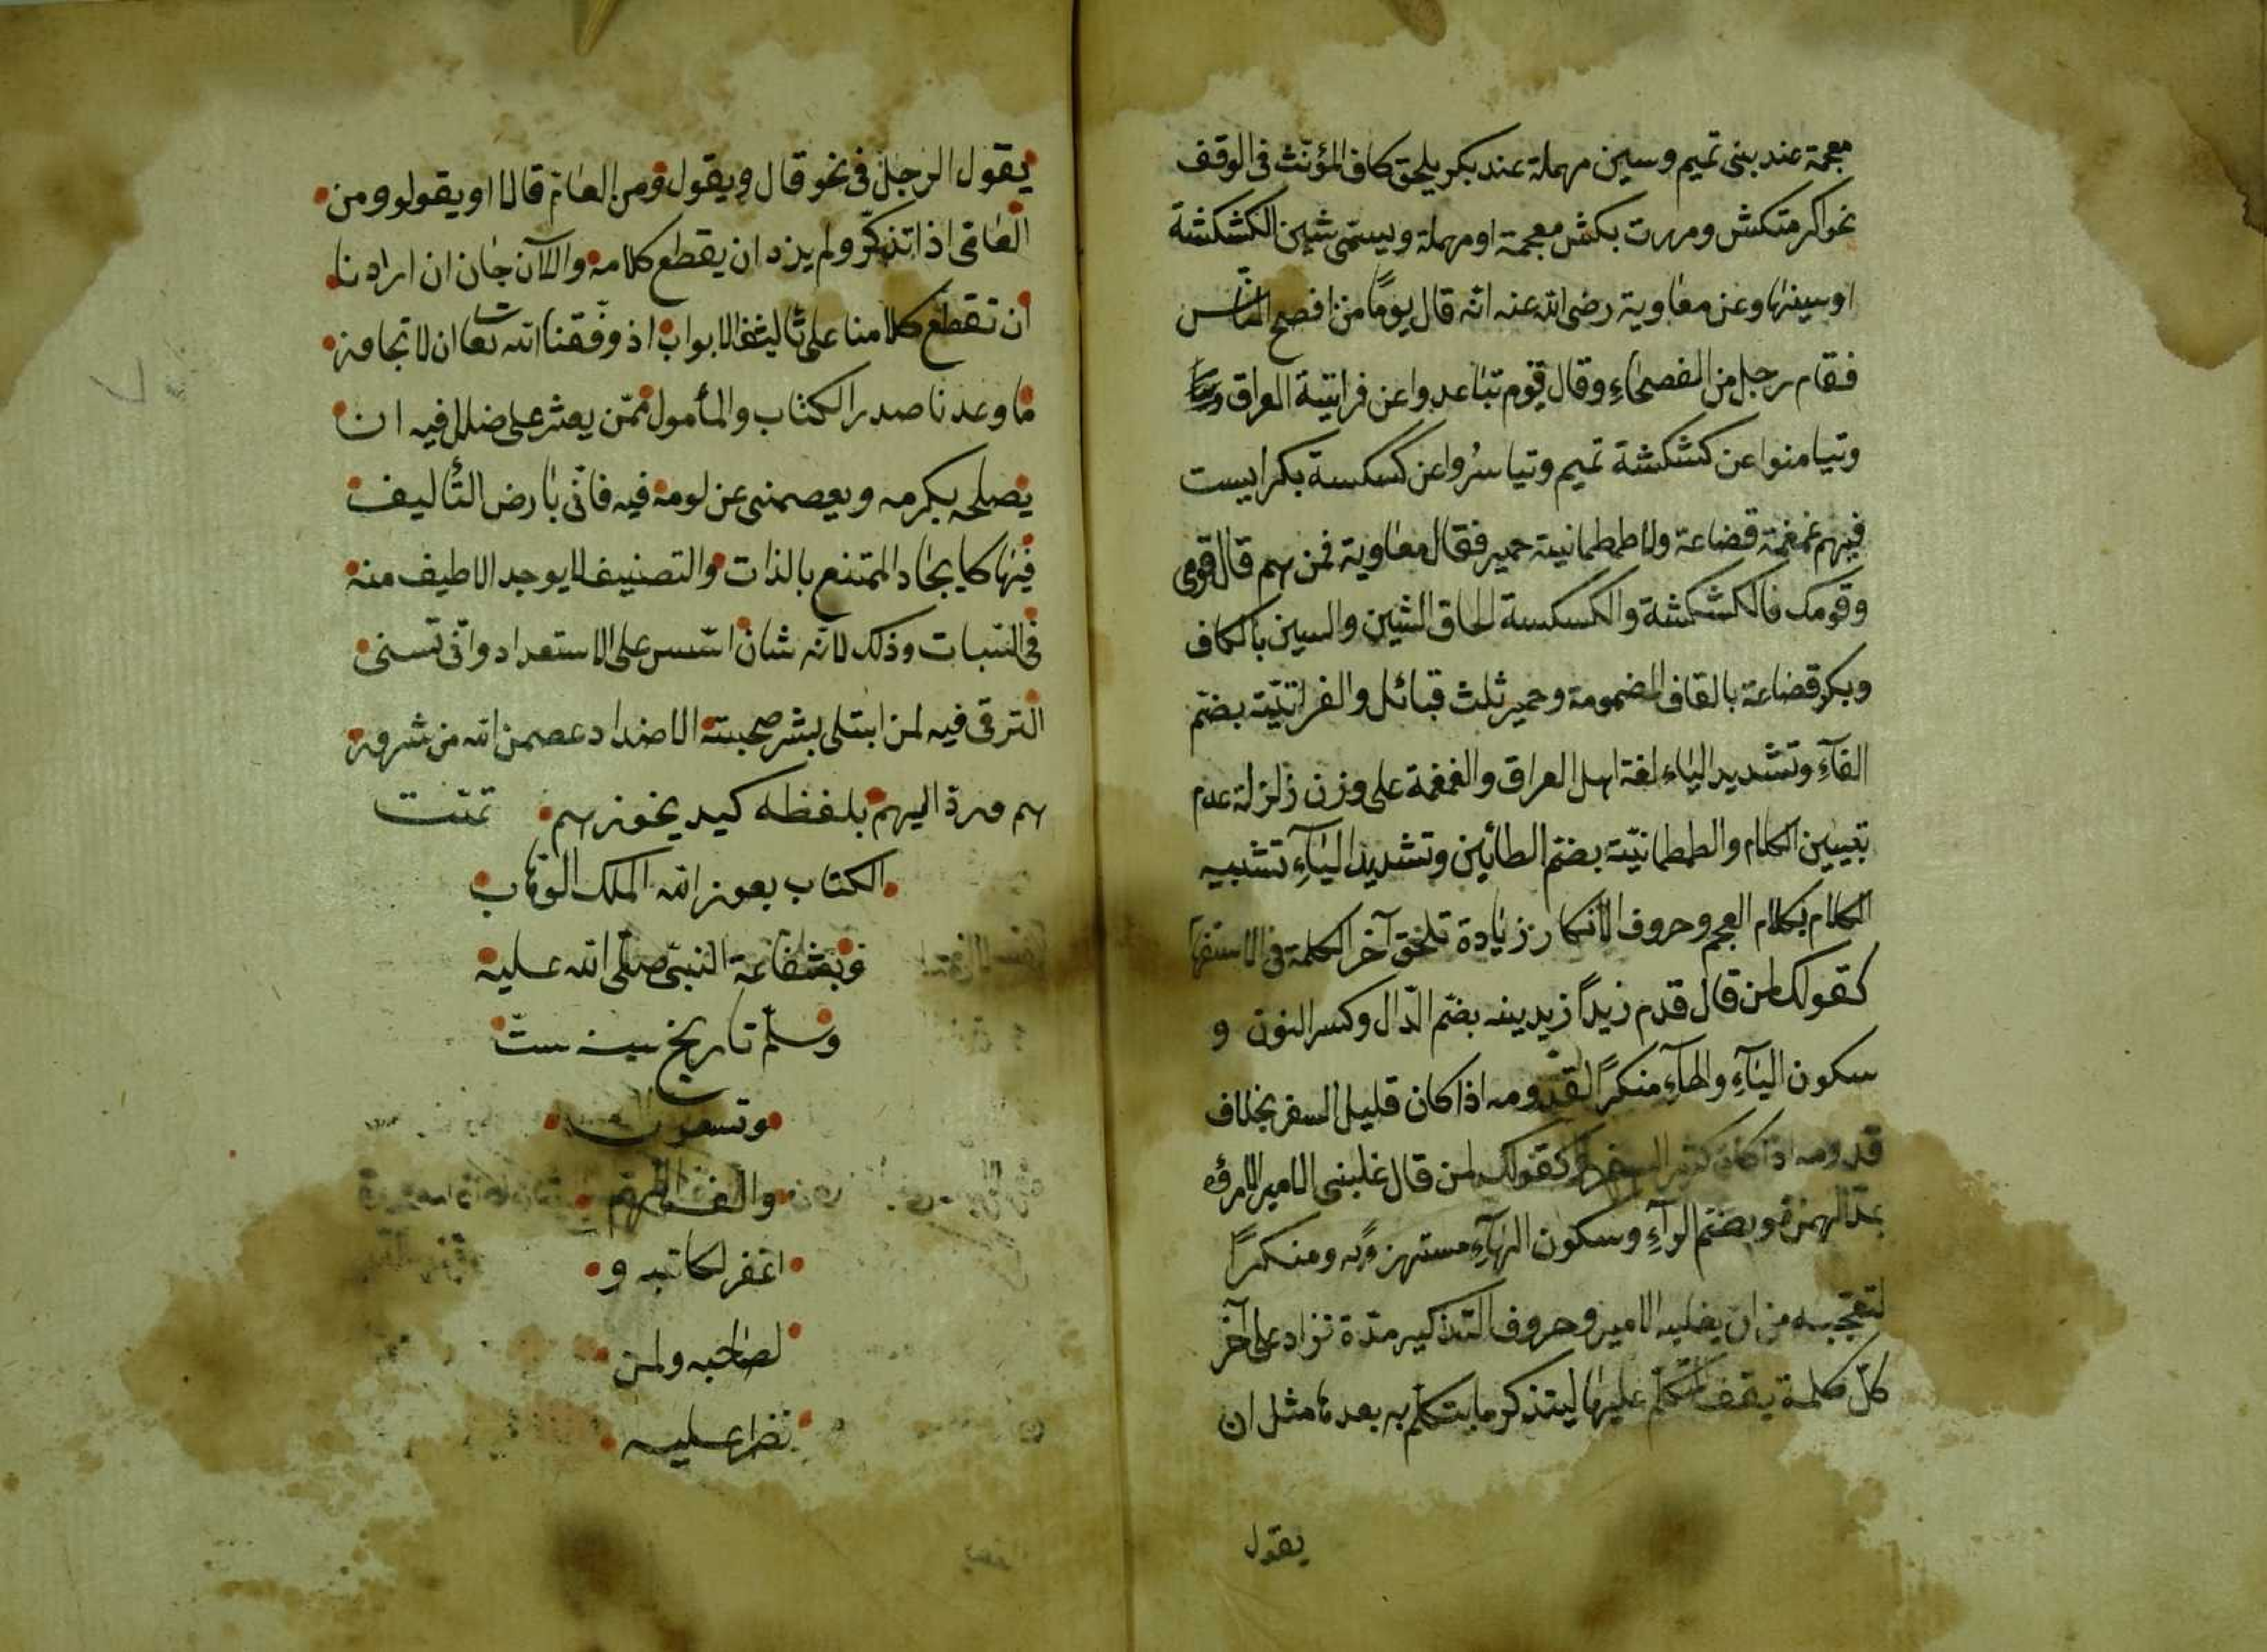 معجمة عند بنى تميم وسين مهملة عند بكر يلحق كاف المؤنث فى الوقف
نحو اكرمتكش ومررت بكش معجمة او مهملة ويسمى شين الكشكشة
او سينها وعن معاوية رضى الله عنه انه قال يومًا من افصح الناس
فقام رجل من الفصحاء وقال قوم تباعدوا عن فراتية العراق
وتيامنوا عن كشكشة تميم وتياسروا عن كسكسة بكر ليست
فيهم غمغمة قضاعة ولا طمطمانية حمير فقال معاوية فمن هم قال قومى
وقومك فالكشكشة والكسكسة الحاق الشين والسين بالكاف
وبكر وقضاعة بالقاف المضمومة وحمير ثلث قبائل والفراتيّة بضمّ
الفآء وتشديد الياء لغة اهل العراق والغمغمة على وزن زلزلة عدم
تبيين الكلام والطمطمانيّة بضمّ الطائين وتشديد اليآء تشبيه
الكلام بكلام العجم وحروف الانكار زيادة تلحق آخر الكلمة فى الاستفها
كقولك لمن قال قدم زيدًا زيدينه بضمّ الدّال وكسر النون و
سكون اليآء والهآء منكرًا لقدومه اذا كان قليل السفر بخلاف
قدومه اذا كان كثير السفر كقولك لمن قال غلبنى الامير الاميروه
بمدّ الهمزة وبضمّ الرآء وسكون الهآء مستهزء به ومنكرًا
لتعجّبه من ان يغلبه الامير وحروف التذكير مدّة تزاد على آخر
كلّ كلمة يقف المتكلّم عليها ليتذكر ما يتكلّم به بعدها مثل ان
يقول
يقول الرجل فى نحو قال ويقول ومن العام قالا او يقولو ومن
العامى اذا تذكّر ولم يرد ان يقطع كلامه والآن جان ان اردنا
ان نقطع كلامنا على ثالث الابواب اذ وفّقنا الله تعا ان لا تجاوز
ما وعدنا صدر الكتاب والمأمول ممّن يعثر على ضلل فيه ان
يصلحه بكرمه ويعصمنى عن لومه فيه فانّى بارض التأليف
فيها كايجاد الممتنع بالذات والتصنيف لا يوجد الا طيف منه
فى السبات وذلك لانّه شان اسّس على الاستعداد وانّى تسنى
الترقى فيه لمن ابتلى بشر صحبته الاضداد عصمن الله من شرور
هم ورد اليهم بلفظه كيد نحورهم تمّت
الكتاب بعون الله الملك الوهاب
وبشفاعة النبىّ صلّى الله عليه
وسلّم تاريخ سنه ستّ
وتسعين
والف اللّهمّ
اغفر لكاتبه و
لصاحبه ولمن
نظر عليه